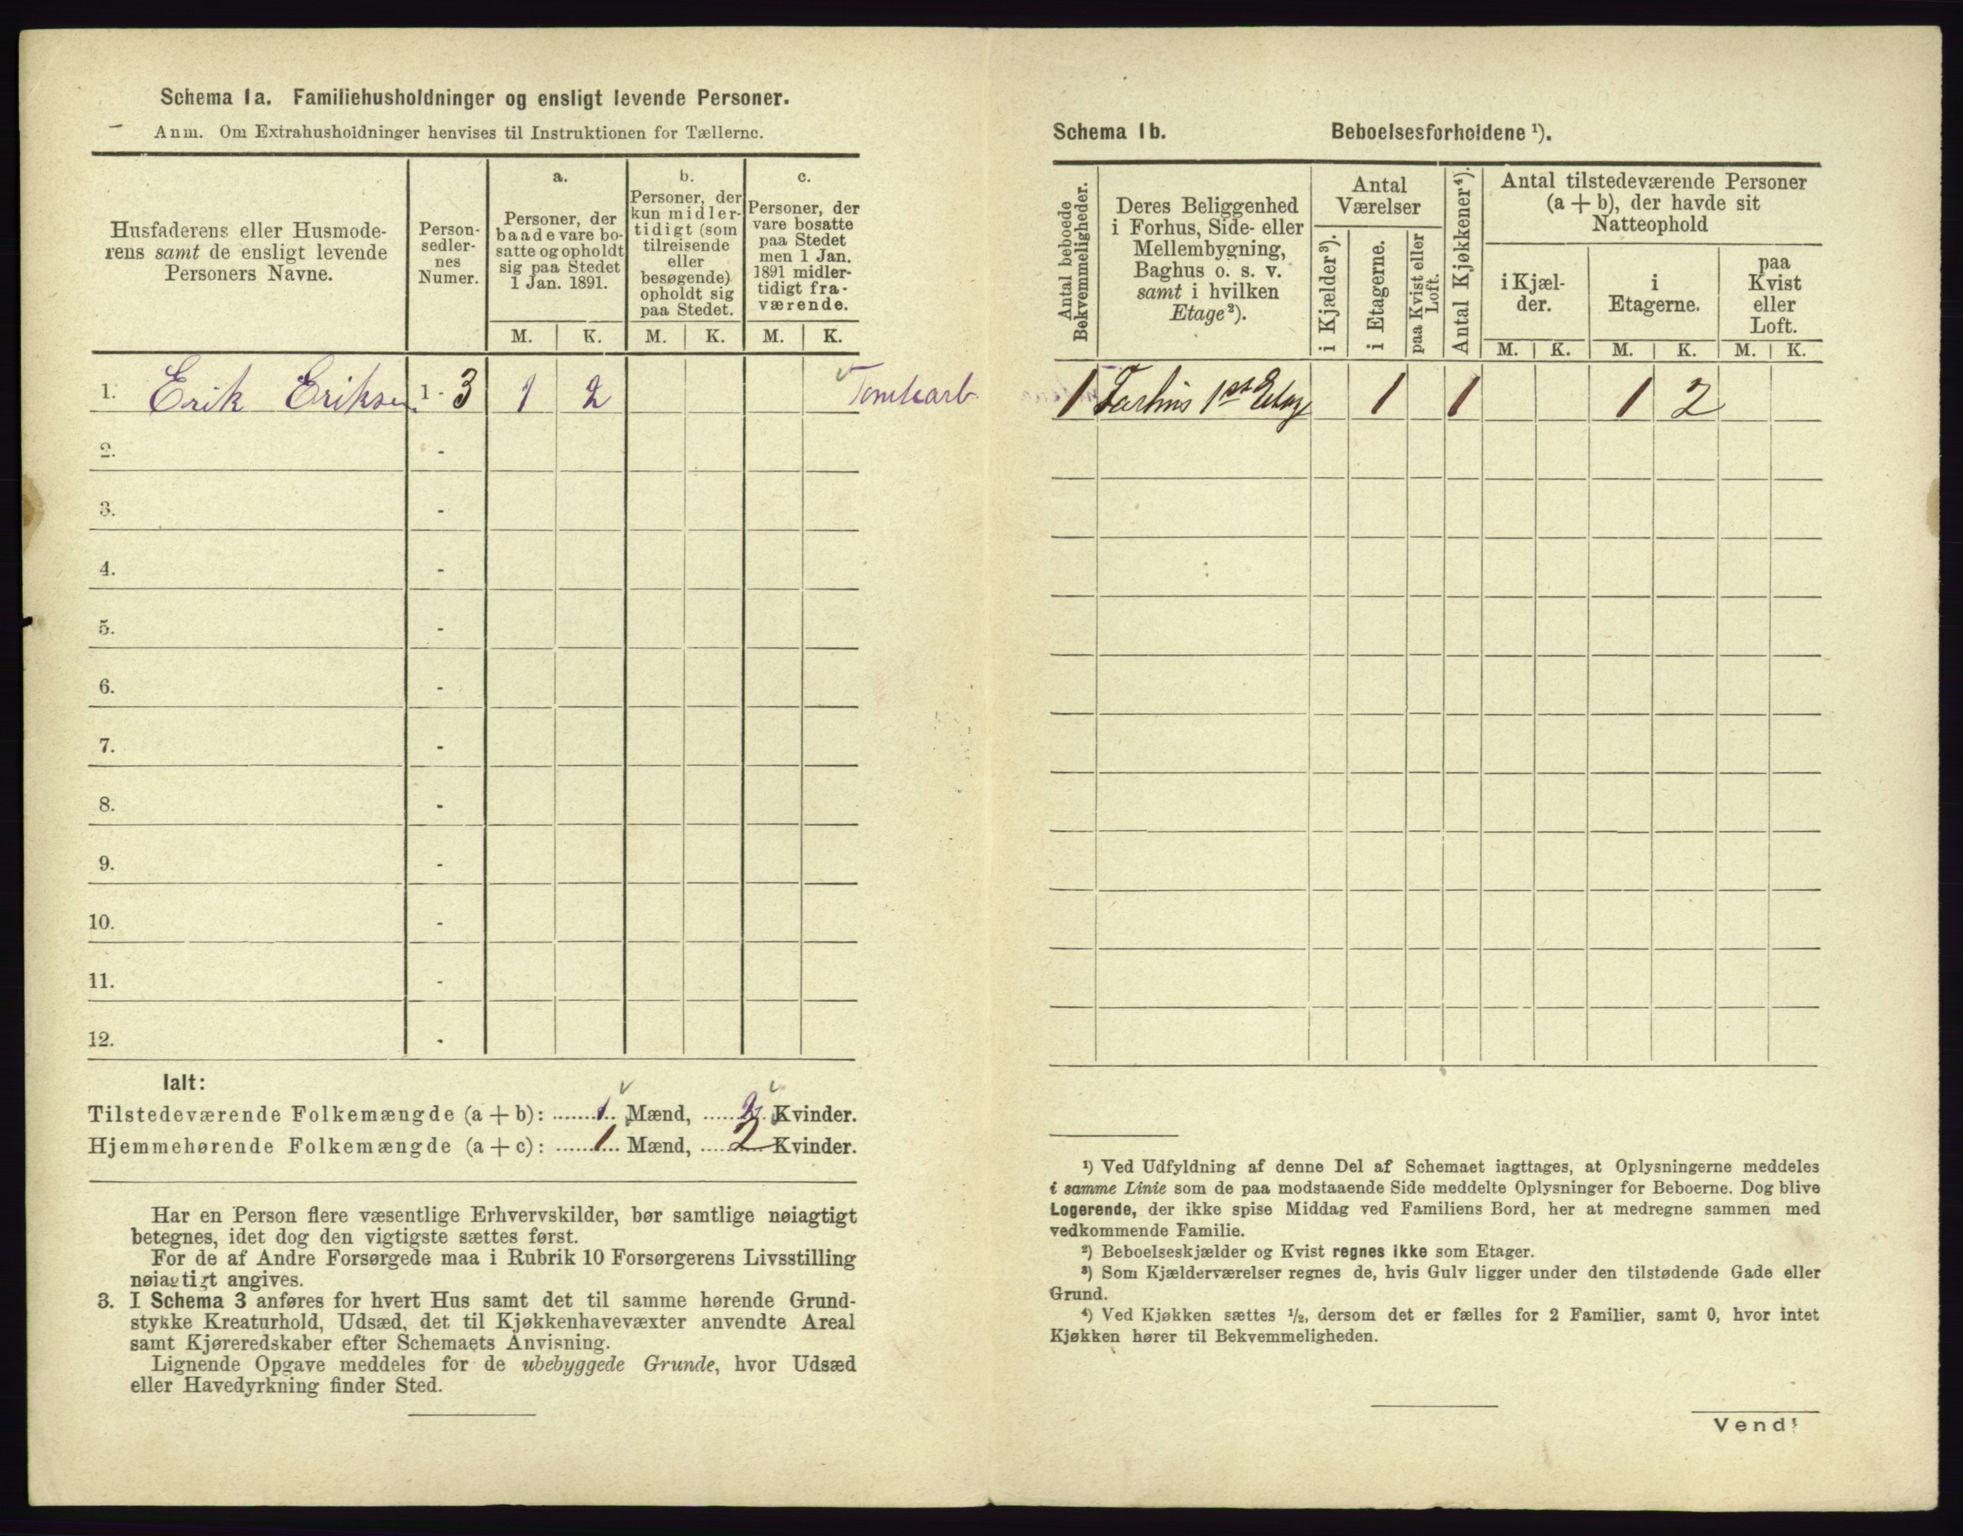 Schema 1a. Familiehusholdninger og ensligt levende Personer.
Anm. Om Extrahusholdninger henvises til Instruktionen for Tællerne.
Husfaderens eller Husmode-
rens samt de ensligt levende
Personers Navne.
Person-
sedler-
nes
Numer.
a.
Personer, der
baade vare bo-
satte og opholdt
sig paa Stedet
1 Jan. 1891.
b.
Personer, der
kun midler-
tidigt (som
tilreisende
eller
besøgende)
opholdt sig
paa Stedet.
c.
Personer, der
vare bosatte
paa Stedet
men 1 Jan.
1891 midler-
tidigt fra-
værende.
M. K. M. K. M. K.
1. Erik Eriksen 1 - 3 1 2
2. -
3. -
4. -
5. -
6. -
7. -
8. -
9. -
10. -
11. -
12. -
Ialt:
Tilstedeværende Folkemængde (a + b): 1 Mænd, 2 Kvinder.
Hjemmehørende Folkemængde (a + c): 1 Mænd, 2 Kvinder.
Har en Person flere væsentlige Erhvervskilder, bør samtlige nøiagtigt
betegnes, idet dog den vigtigste sættes først.
For de af Andre Forsørgede maa i Rubrik 10 Forsørgerens Livsstilling
nøiagtigt angives.
3. I Schema 3 anføres for hvert Hus samt det til samme hørende Grund-
stykke Kreaturhold, Udsæd, det til Kjøkkenhavevæxter anvendte Areal
samt Kjøreredskaber efter Schemaets Anvisning.
Lignende Opgave meddeles for de ubebyggede Grunde, hvor Udsæd
eller Havedyrkning finder Sted.
Schema 1b. Beboelsesforholdene ¹).
Antal beboede
Bekvemmeligheder.
Deres Beliggenhed
i Forhus, Side- eller
Mellembygning,
Baghus o. s. v.
samt i hvilken
Etage²).
Antal
Værelser
i Kjælder³).
i Etagerne.
paa Kvist eller
Loft.
Antal Kjøkkener⁴).
Antal tilstedeværende Personer
(a + b), der havde sit
Natteophold
i Kjæl-
der.
i
Etagerne.
paa
Kvist
eller
Loft.
M. K. M. K. M. K.
1 1 1 1 2
¹) Ved Udfyldning af denne Del af Schemaet iagttages, at Oplysningerne meddeles
i samme Linie som de paa modstaaende Side meddelte Oplysninger for Beboerne. Dog blive
Logerende, der ikke spise Middag ved Familiens Bord, her at medregne sammen med
vedkommende Familie.
²) Beboelseskjælder og Kvist regnes ikke som Etager.
³) Som Kjælderværelser regnes de, hvis Gulv ligger under den tilstødende Gade eller
Grund.
⁴) Ved Kjøkken sættes ½, dersom det er fælles for 2 Familier, samt 0, hvor intet
Kjøkken hører til Bekvemmeligheden.
Vend!